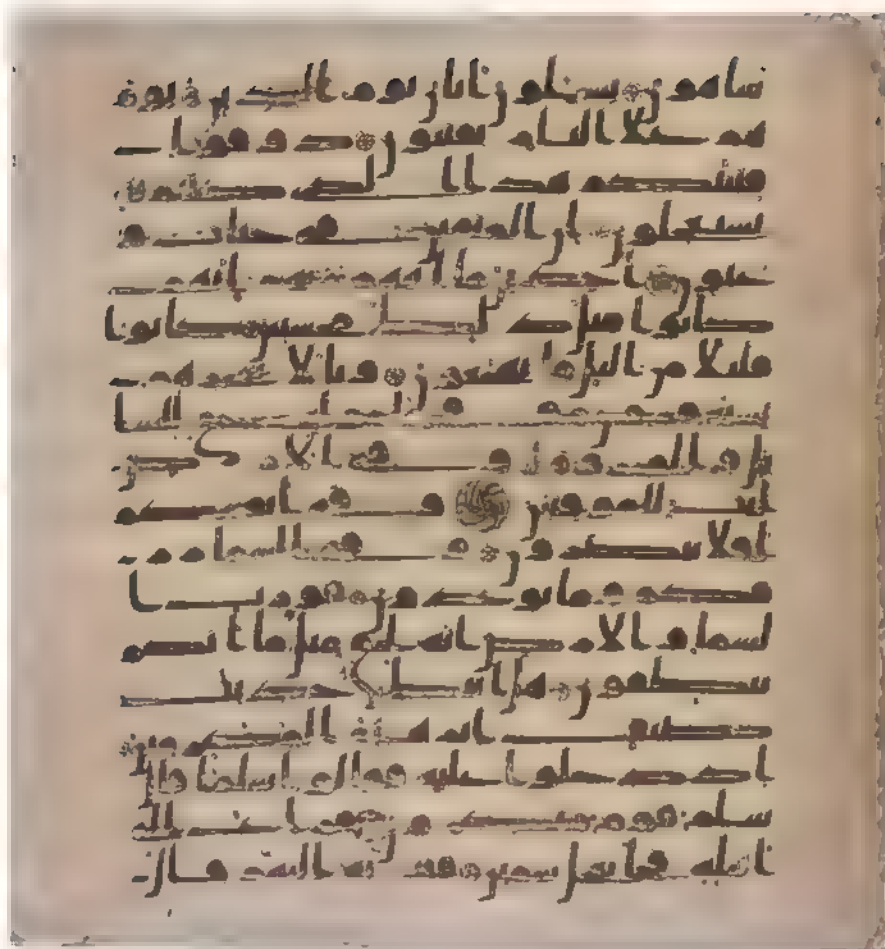 ساهون يسلون ايان يوم الدين يوم
هم على النار يفتنون ذوقوا
فتنتكم هذا الذي كنتم به
تستعجلون ان المتقين في جنت و
عيون اخذين ما اتيهم ربهم انهم
كانوا قبل ذلك محسنين كانوا
قليلا من اليل ما يهجعون وبالاسحار هم
يستغفرون وفي امولهم حق للسا
يل والمحروم وفي الارض
ايت للموقنين وفي انفسكم
افلا تبصرون وفي السما ر
زقكم وما توعدون فورب ا
لسما والارض انه لحق مثل ما انكم
تنطقون هل اتيك حديث
ضيف ابرهيم المكرمين
اذ دخلوا عليه فقالوا سلما قال
سلم قوم منكرون فراغ الى
اهله فجا بعجل سمين فقربه اليهم قال